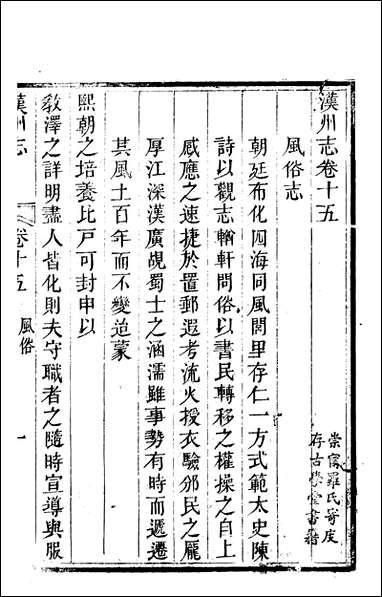 漢州志卷十五
崇寧羅氏寄庋
存古學堂書籍
風俗志
朝廷布化四海同風閭里存仁一方式範太史陳
詩以觀志輶軒問俗以書民轉移之權操之自上
感應之速捷於置郵遐考流火授衣驗邠民之龎
厚江深漢廣覘蜀士之涵濡雖事勢有時而遞遷
其風土百年而不變迨蒙
熙朝之培養比戶可封申以
敎澤之詳明盡人皆化則夫守職者之隨時宣導與服
漢州志
卷十五
風俗
一